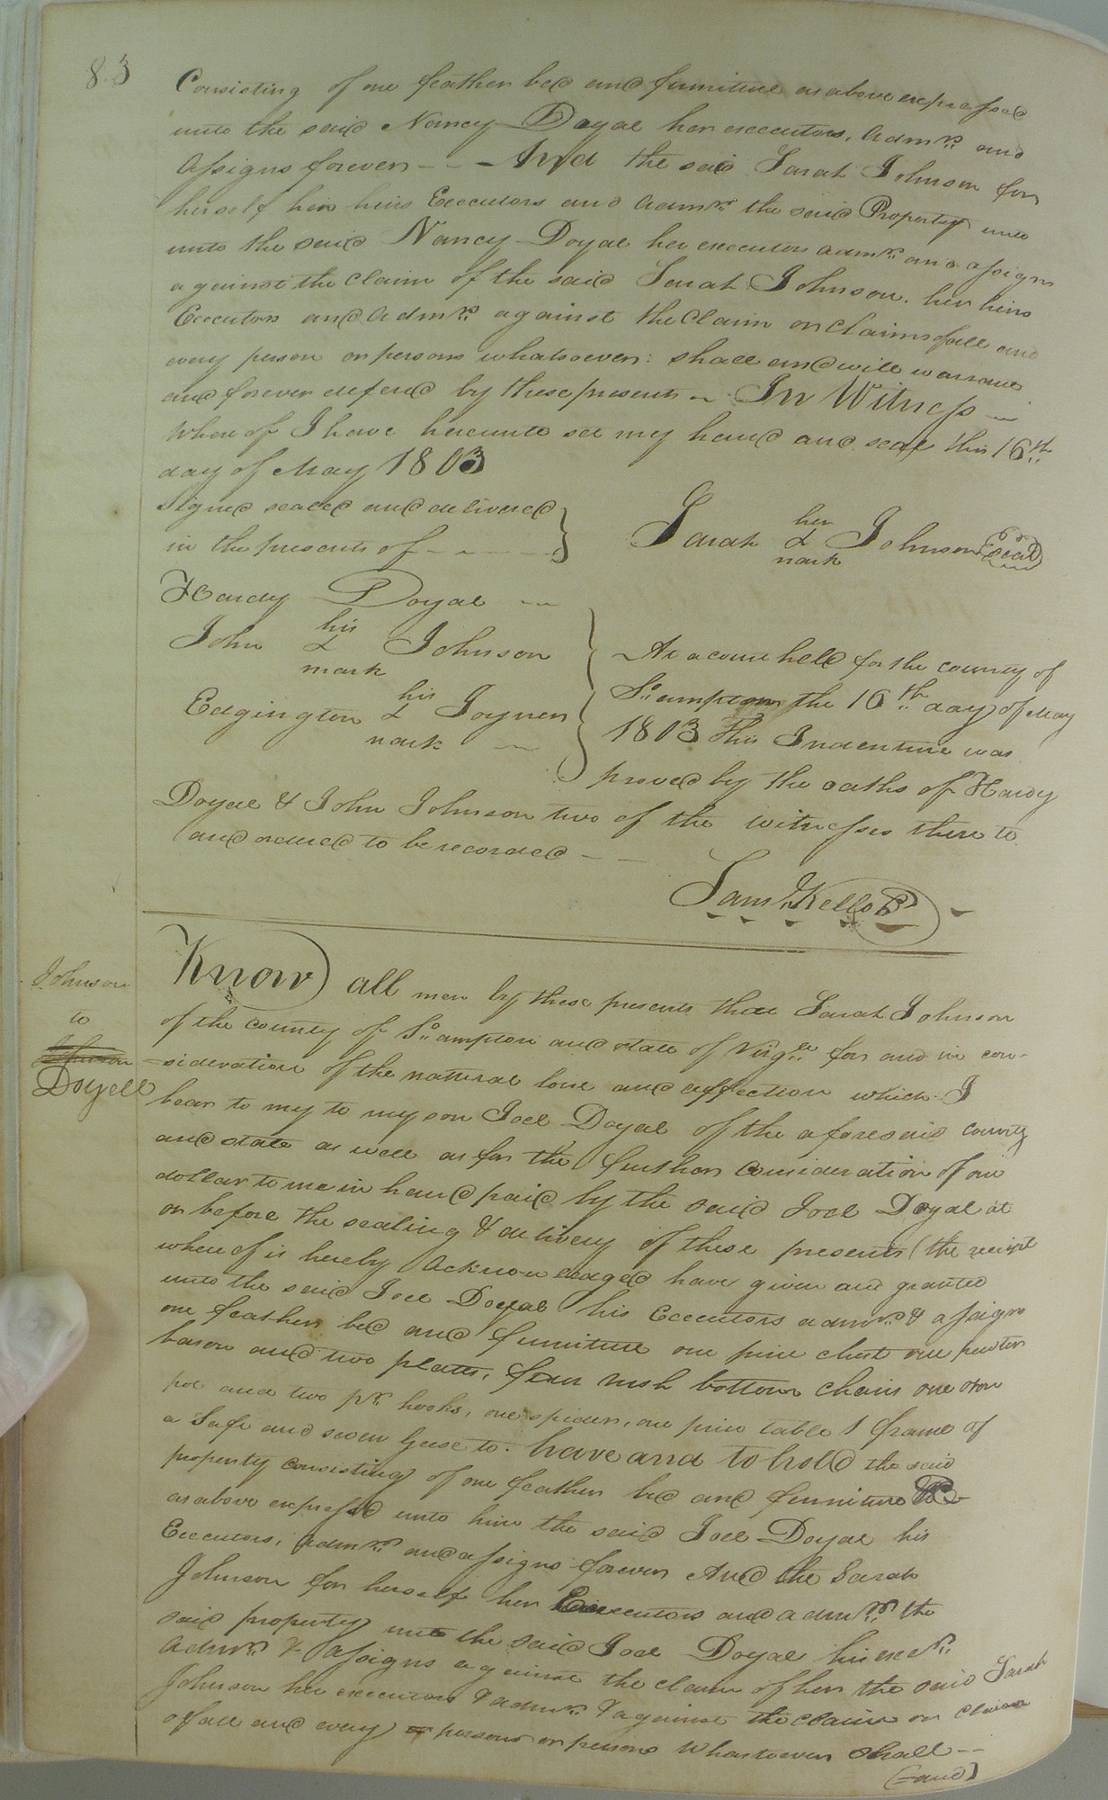 83
Consisting of one feather bed and furniture as above expressed
unto the said Nancy Doyal her executors, Admrs. and
Assigns forever - - - And the said Sarah Johnson for
herself her heirs Executors and Admrs. the said Property unto
unto the said Nancy Doyal her executors admrs. and assigns
against the claim of the said Sarah Johnson. her heirs
Executors and Admrs. against the Claim or Claims of all and
every person or persons whatsoever: shall and will warrant
and forever defend by these presents ~ In Witness ~
Where of I have hereunto set my hand and seal this 16th
day of May 1803
Signed sealed and delivered
in the presents of - - - -
Sarah her mark Johnson Seal
Hardy Doyal ~
John his mark Johnson
Edgington his mark Joyner
At a court held for the county of
So.ampton the 16th. day of May
1803 This Indenture was
proved by the oaths of Hardy
Doyal & John Johnson two of the witnesses there to
and ordered to be recorded - -
Saml. Kello
Johnson
to
Doyell
Know all men by these presents that Sarah Johnson
of the county of So.ampton and state of Virga. for and in con-
=sideration of the natural love and affection which I
bear to my to my son Joel Doyal of the aforesaid county
and state as well as for the further Consideration of one
dollar to me in hand paid by the said Joel Doyal at
or before the sealing & delivery of these presents (the receipt
where of is hereby Acknowledged have given and granted
unto the said Joel Doyal his Executors admrs. & assigns
one feather bed and furniture one pine chest one pewter
bason and two plates, four rush bottom chairs one Iron
pot and two pr. hooks, one spider, one pine table 1 frame of
a Safe and seven Geese to. have and to hold the said
property consisting of one feather bed and furniture &c
as above expressed unto him the said Joel Doyal his
Executors, Admrs. and assigns forever And the Sarah
Johnson for herself her Executors and admrs. the
said property unto the said Joel Doyal his exrs.
Admrs. & Assigns against the claim of her the said Sarah
Johnson her executors & admrs. & against the claim or claim
of all and every persons or persons Whatsoever Shall --
(and)